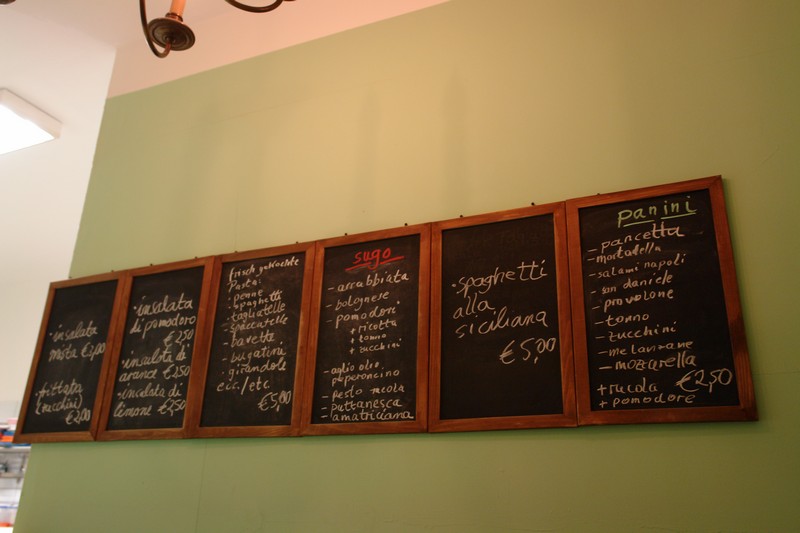 ·insalata
mista €2,00
·frittata
(zucchini)
€2,00
·insalata
di pomodoro
€2,50
·insalata di
arance €2,50
·insalata di
limone €2,50
frisch gekochte
Pasta:
·penne
·spaghetti
·tagliatelle
·spaccatelle
·bavette
·bugatini
·girandole
ecc./etc
€5,00
sugo
-arrabbiata
-bolognese
-pomodori
+ ricotta
+ tonno
+ zucchini
-aglio olio
peperoncino
- pesto rucola
- puttanesca
- amatriciana
·spaghetti
alla
siciliana
€5,00
panini
- pancetta
- mortadella
- salami napoli
- san daniele
- provolone
- tonno
- zucchini
- melanzane
- mozzarella
+ rucola €2,50
+ pomodore